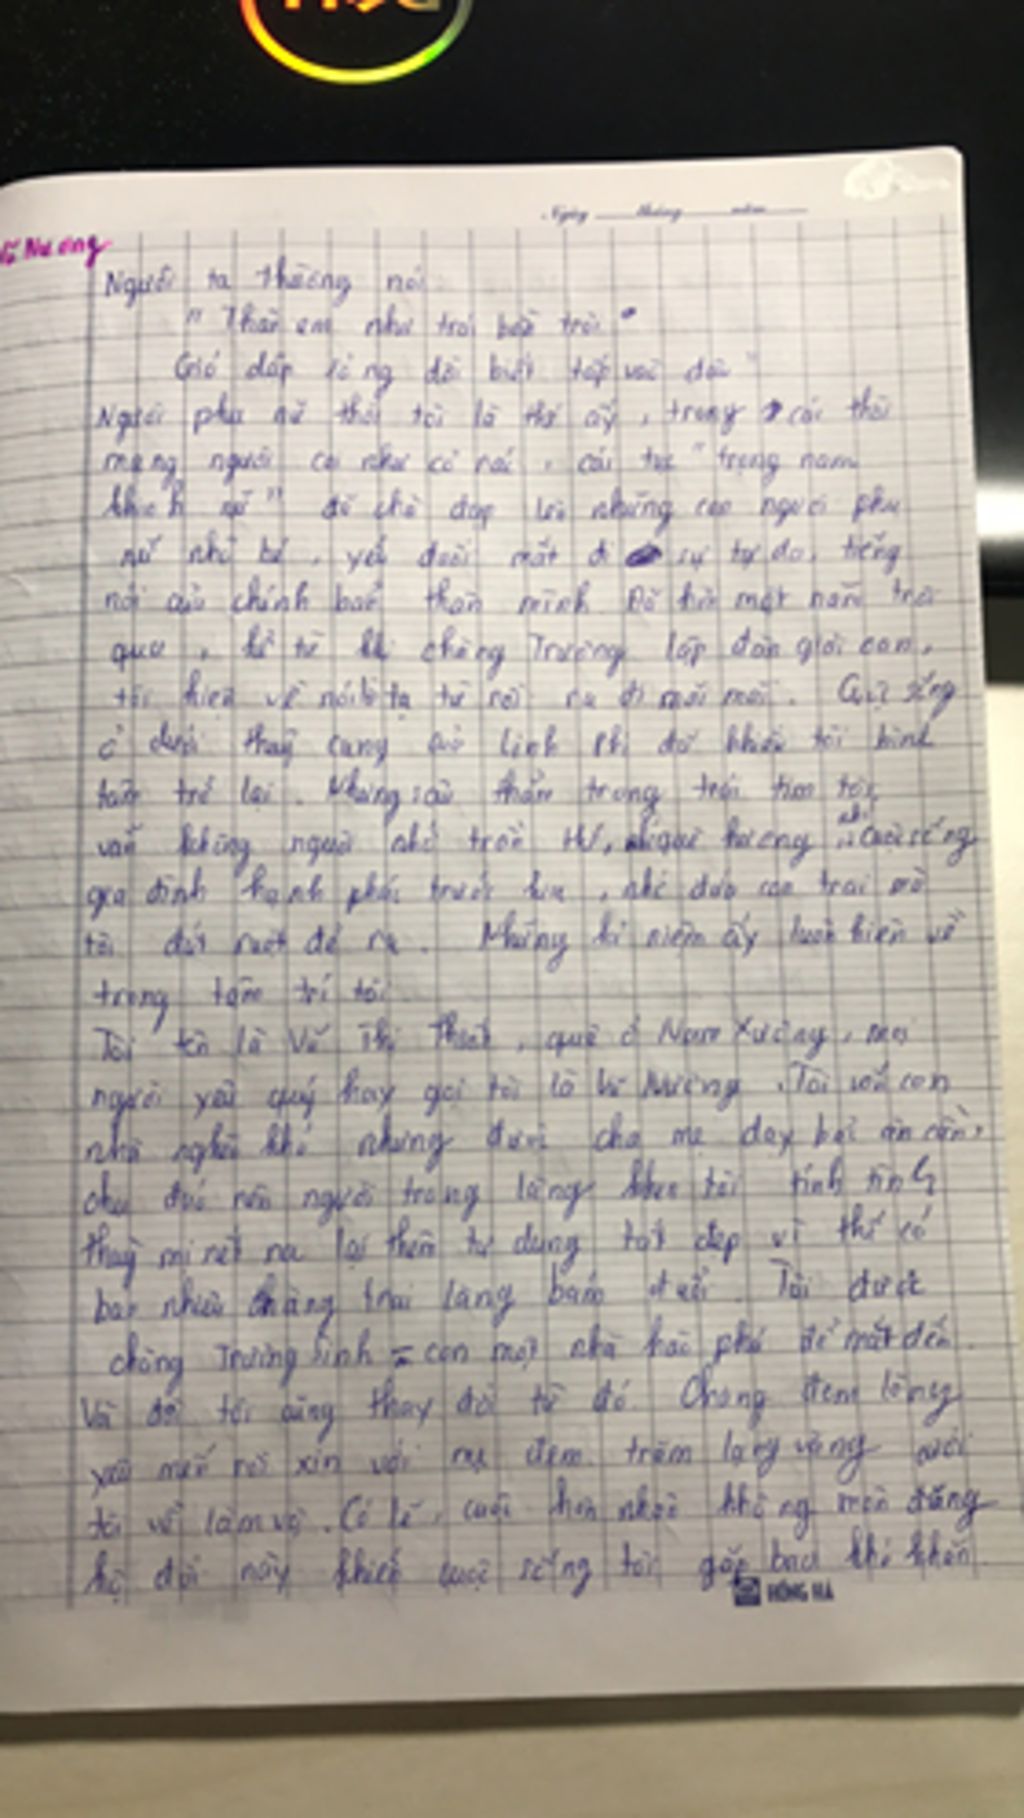 Nương
Ngày tháng năm
Người ta thường nói
" Thân em như trái bần trôi
Gió dập sóng dồi biết tấp vào đâu "
Người phụ nữ thời tôi là thế ấy, trong cái thời
mạng người coi như cỏ rác, cái tục " trọng nam
khinh nữ " đã chà đạp lên những con người phụ
nữ nhỏ bé, yếu đuối mất đi sự tự do, tiếng
nói của chính bản thân mình. Đã hơn một năm trôi
qua, kể từ khi chàng Trương lập đàn giải oan,
tôi hiện về nói lời tạ từ rồi ra đi mãi mãi. Cuộc sống
ở dưới thuỷ cung của Linh Phi đã khiến tôi bình
tâm trở lại. Nhưng sâu thẳm trong trái tim tôi,
vẫn không nguôi nhớ trần thế, quê hương nhớ cuộc sống
gia đình hạnh phúc trước kia, nhớ đứa con trai mà
tôi đứt ruột đẻ ra. Những kỉ niệm ấy luôn hiện về
trong tâm trí tôi
Tôi tên là Vũ Thị Thiết, quê ở Nam Xương, mọi
người yêu quý hay gọi tôi là Vũ Nương. Tôi vốn con
nhà nghèo khó nhưng được cha mẹ dạy bảo ân cần,
chu đáo nên người trong làng khen tôi tính tình
thuỳ mị nết na lại thêm tư dung tốt đẹp vì thế có
bao nhiêu chàng trai làng bám đuổi. Tôi được
chàng Trương Sinh - con một nhà hào phú để mắt đến.
Và đời tôi cũng thay đổi từ đó. Chàng đem lòng
yêu mến rồi xin với mẹ đem trăm lạng vàng cưới
tôi về làm vợ. Có lẽ, cuộc hôn nhân không môn đăng
hộ đối này khiến cuộc sống tôi gặp bao khó khăn.
HỒNG HÀ